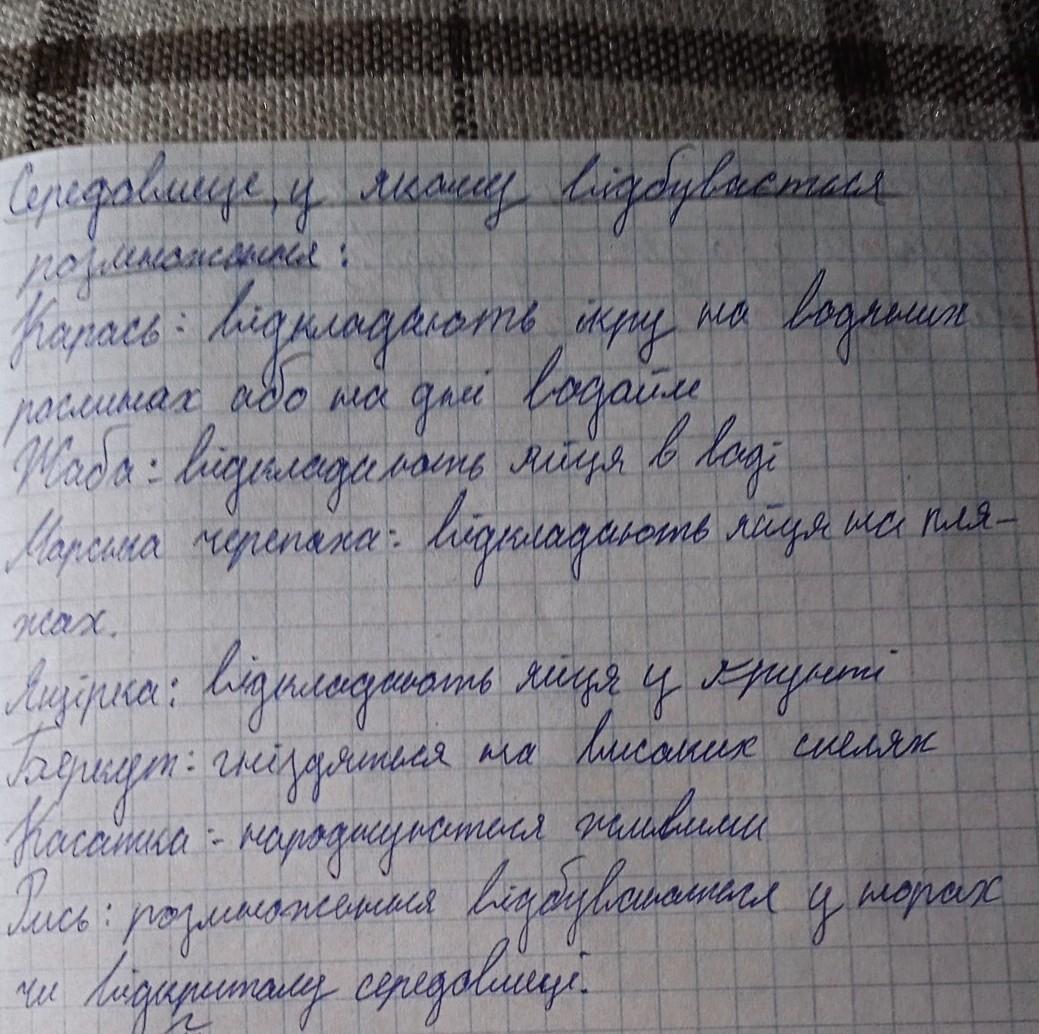 Середовище, у якому відбувається
розмноження:
Карась: відкладають ікру на водяних
рослинах або на дні водойм
Жаба: відкладають яйця в воді
Морська черепаха: відкладають яйця на пля-
жах.
Ящірка: відкладають яйця у грунті
Беркут: гніздяться на високих скелях
Касатка - народжуються живими
Рись: розмноження відбуваються у норах
чи відкритому середовищі.